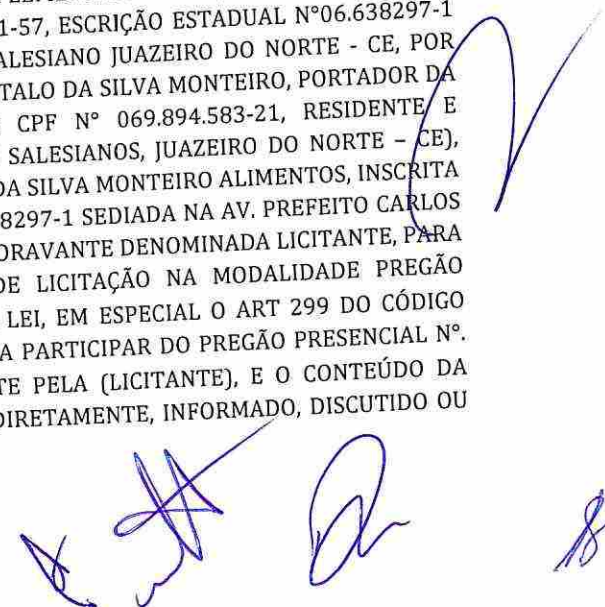 1-57, ESCRIÇÃO ESTADUAL N°06.638297-1
ALESIANO JUAZEIRO DO NORTE - CE, POR
TALO DA SILVA MONTEIRO, PORTADOR DA
CPF N° 069.894.583-21, RESIDENTE E
SALESIANOS, JUAZEIRO DO NORTE – CE),
DA SILVA MONTEIRO ALIMENTOS, INSCRITA
8297-1 SEDIADA NA AV. PREFEITO CARLOS
ORAVANTE DENOMINADA LICITANTE, PARA
DE LICITAÇÃO NA MODALIDADE PREGÃO
LEI, EM ESPECIAL O ART 299 DO CÓDIGO
A PARTICIPAR DO PREGÃO PRESENCIAL N°.
TE PELA (LICITANTE), E O CONTEÚDO DA
DIRETAMENTE, INFORMADO, DISCUTIDO OU